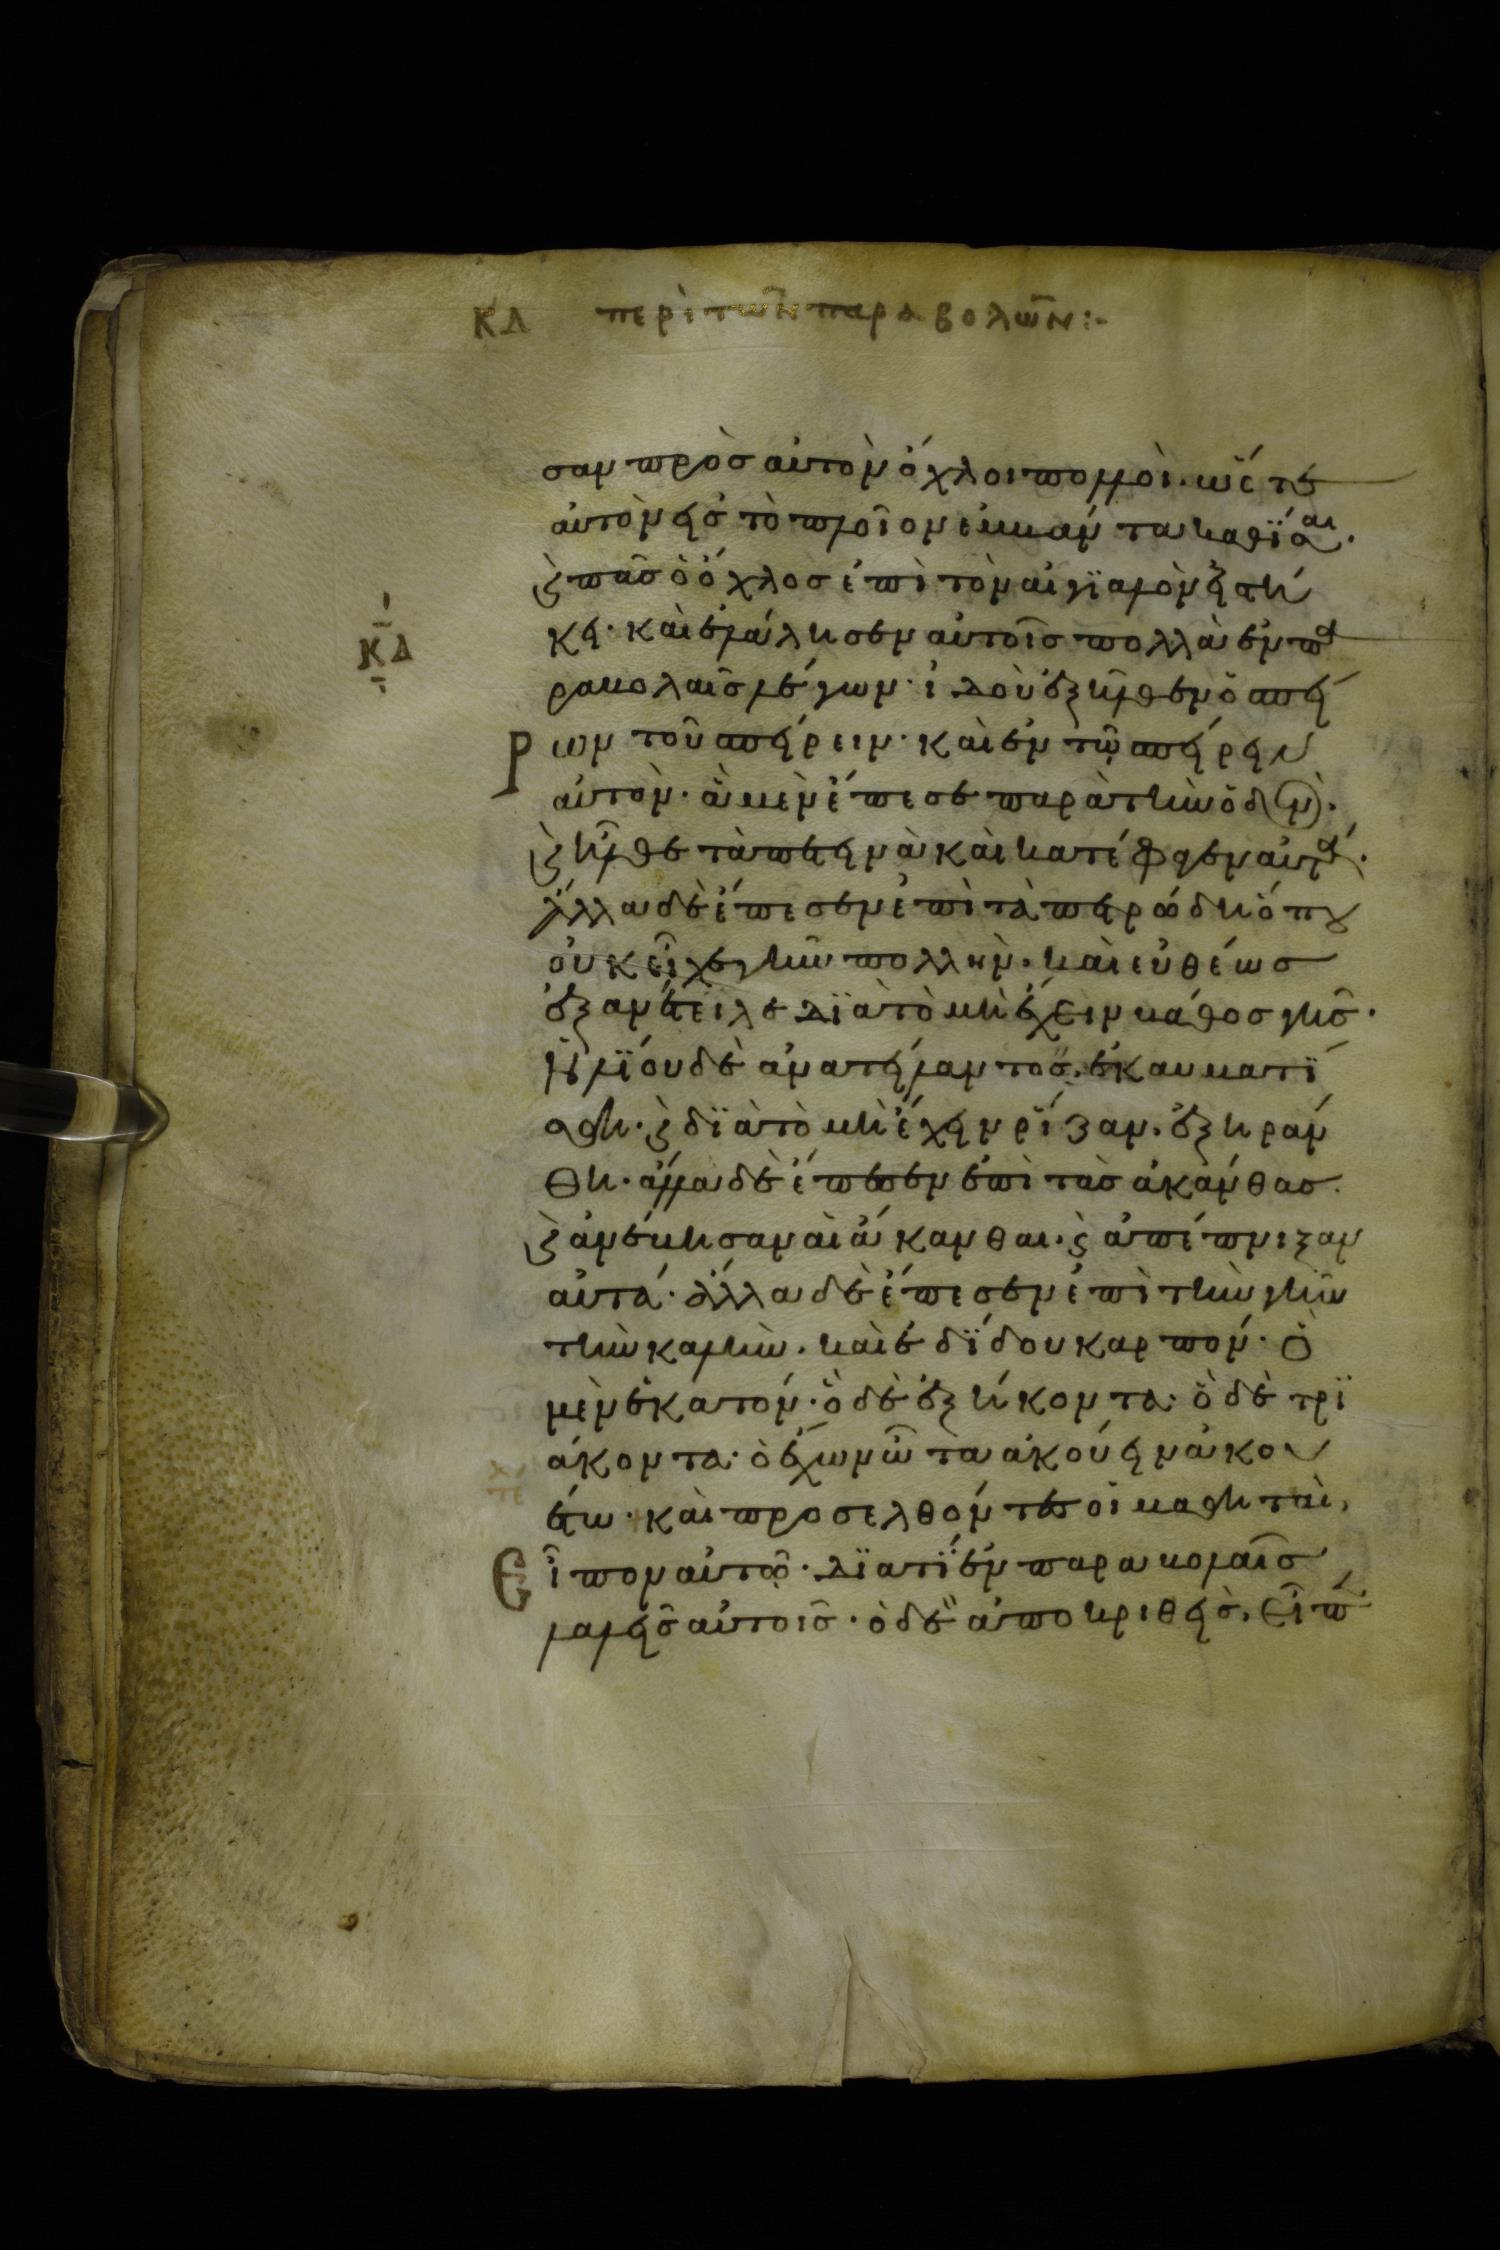 ΚΔ περὶ τῶν παραβολῶν:-
σαν πρὸς αὐτὸν ὄχλοι πολλοὶ. ὥστε
αὐτὸν εἰς τὸ πλοῖον ἐμβάντα καθῖσαι.
ϗ πᾶς ὁ ὄχλος ἐπὶ τὸν αἰγιαλὸν εἱστή
κει. καὶ ἐλάλησεν αὐτοῖς πολλὰ ἐν πα
ΚΔ
ραβολαῖς λέγων. ἰδοὺ ἐξῆλθεν ὁ σπεί
ρων τοῦ σπείρειν. καὶ ἐν τῷ σπείρειν
αὐτὸν. ἃ μὲν ἔπεσε παρὰ τὴν ὁδόν.
ϗ ἦλθε τὰ πετεινὰ καὶ κατέφαγεν αὐτά.
ἄλλα δὲ ἔπεσεν ἐπὶ τὰ πετρώδη ὅπου
οὐκ εἶχε γῆν πολλὴν. καὶ εὐθέως
ἐξανέτειλε διὰ τὸ μὴ ἔχειν βάθος γῆς.
ἡλίου δὲ ἀνατείλαντος. ἐκαυματί
σθη. ϗ διὰ τὸ μὴ ἔχειν ρίζαν. ἐξηράν
θη. ἄλλα δὲ ἔπεσεν ἐπὶ τὰς ἀκάνθας.
ϗ ἀνέβησαν αἱ ἄκανθαι. ϗ ἀπέπνιξαν
αὐτά. ἄλλα δὲ ἔπεσεν ἐπὶ τὴν γῆν
τὴν καλὴν. καὶ ἐδίδου καρπόν. ὃ
μὲν ἑκατόν. ὃ δὲ ἐξήκοντα. ὃ δὲ τρι
άκοντα. ὁ ἔχων ὦτα ἀκούειν ἀκου
έτω. καὶ προσελθόντες οἱ μαθηταὶ.
εἶπον αὐτῷ. διατί ἐν παραβολαῖς
λαλεῖς αὐτοῖς. ὁ δὲ ἀποκριθεὶς. εἶπ